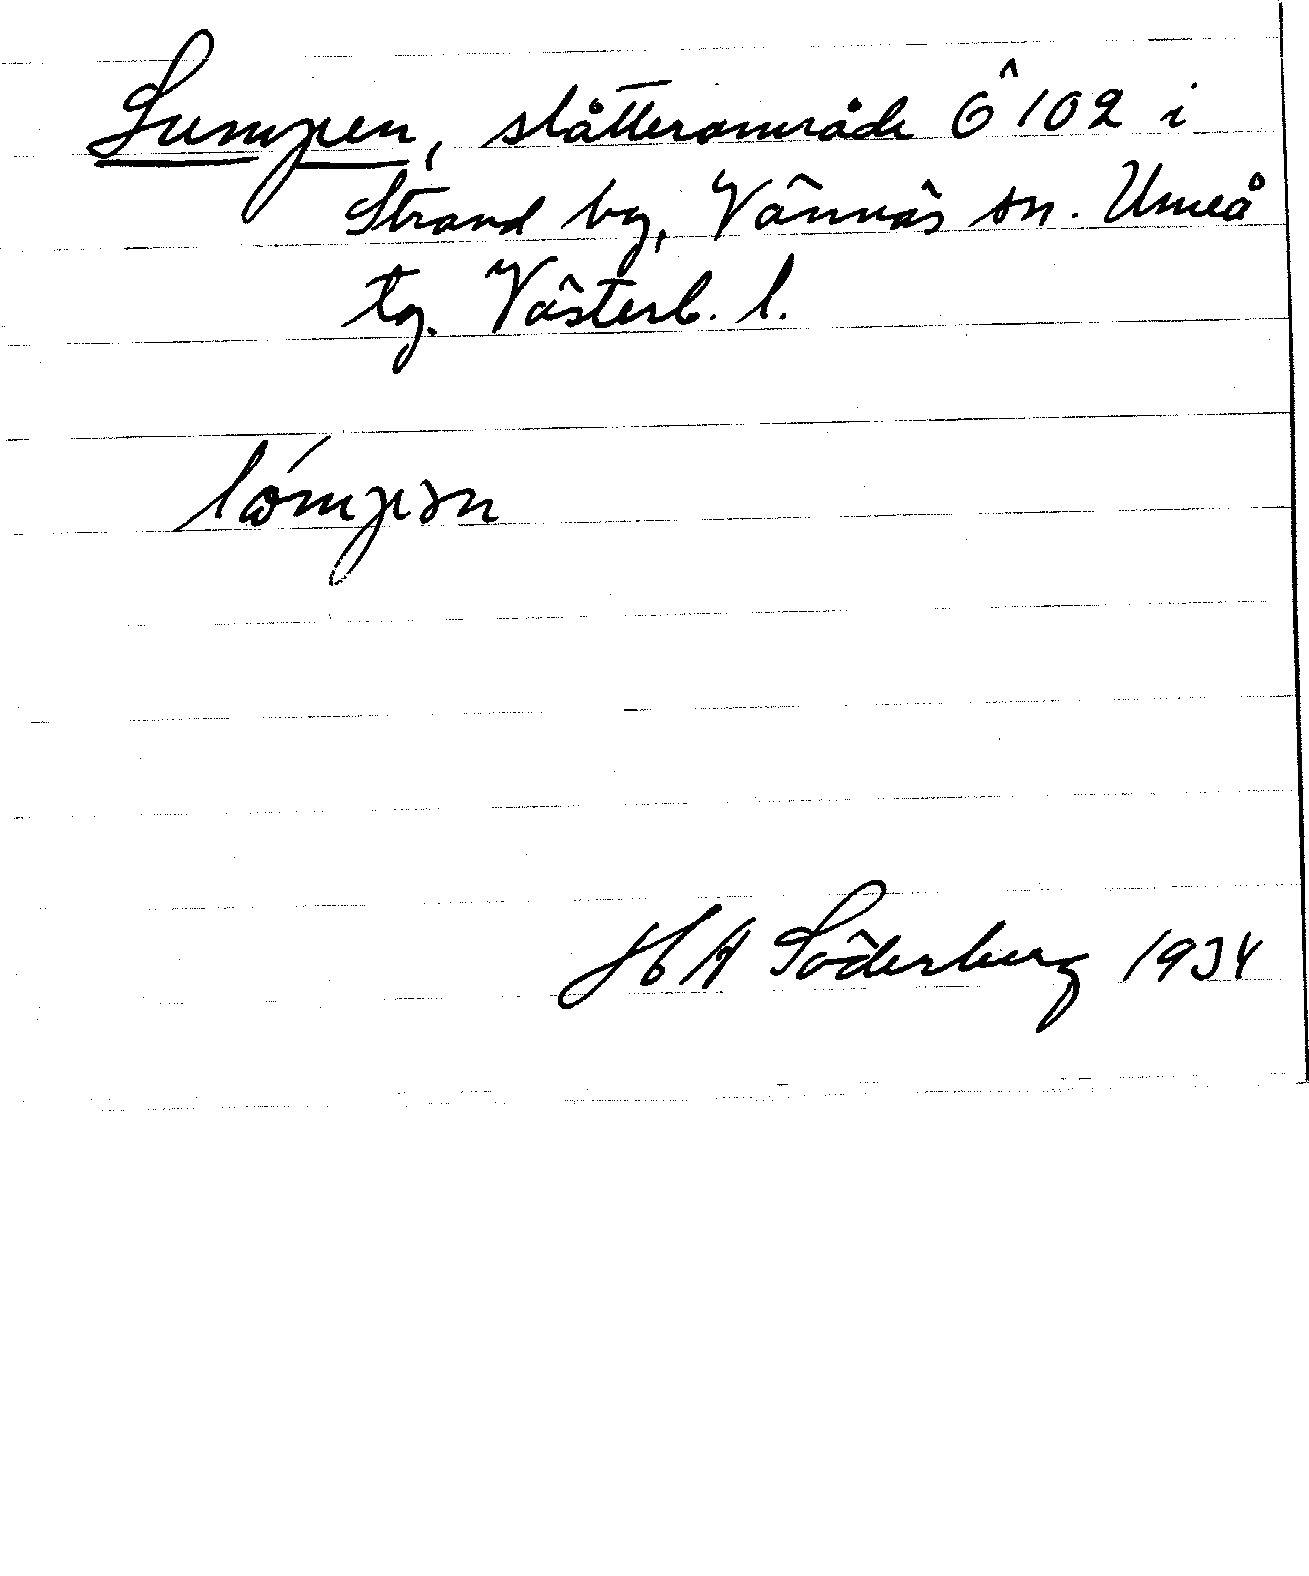 Lumpen, slåtterområde Ö 102 i
Strand by, Vännäs sn. Umeå
tg. Västerb. l.
lómpən
H A Söderberg 1934